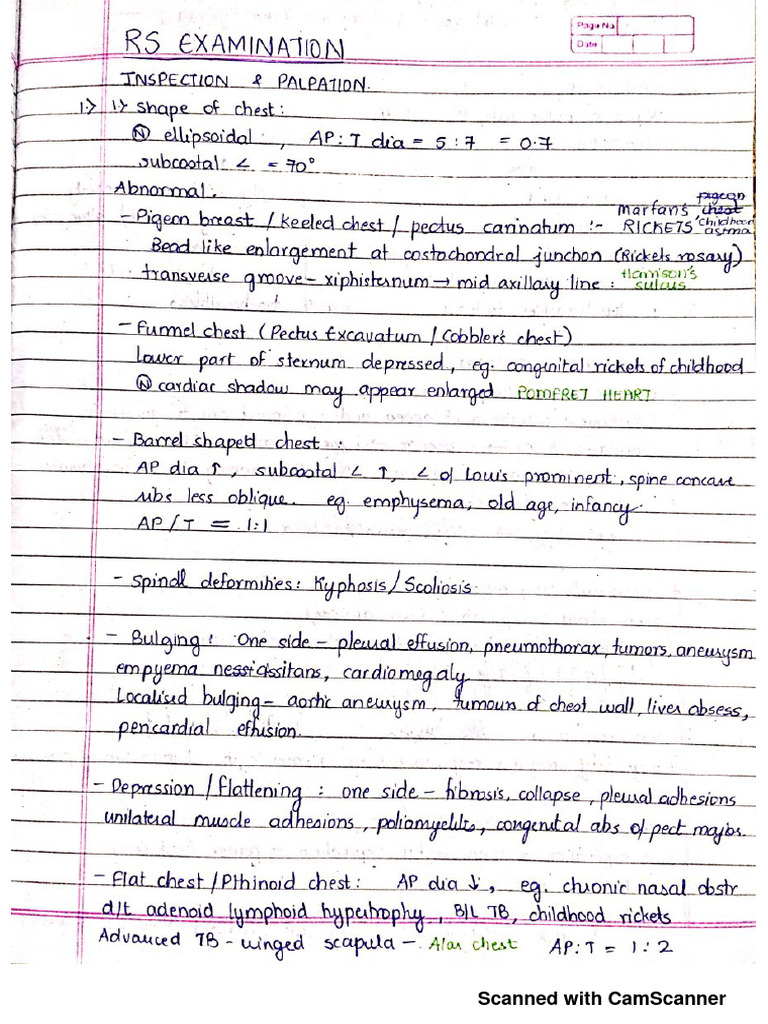 Page No
Date
RS EXAMINATION
INSPECTION & PALPATION.
1:> 1:> shape of chest:
Ⓝ ellipsoidal , AP:T dia = 5:7 = 0.7
subcostal ∠ = 70°
Abnormal.
pigeon
Marfan's, chest
- Pigeon breast / keeled chest / pectus carinatum :- RICKETS childhood astma
Bead like enlargement at costochondral junction (Rickets rosary)
transverse groove - xiphisternum → mid axillary line : Harrison's sulcus
- Funnel chest (Pectus Excavatum / Cobbler's chest)
Lower part of sternum depressed, eg. congenital rickets of childhood
Ⓝ cardiac shadow may appear enlarged POMFRET HEART
- Barrel shaped chest :
AP dia ↑, subcostal ∠ ↑, ∠ of Louis prominent, spine concave
ribs less oblique. eg. emphysema, old age, infancy.
AP/T = 1:1
- Spinal deformities: Kyphosis/Scoliosis.
- Bulging: One side - pleural effusion, pneumothorax, tumors, aneurysm
empyema nessicissitans, cardiomegaly
Localised bulging - aortic aneurysm, tumours of chest wall, liver absess,
pericardial effusion.
- Depression / flattening : one side - fibrosis, collapse, pleural adhesions
unilateral muscle adhesions, poliomyelitis, congenital abs of pect major.
- Flat chest / Pthinoid chest: AP dia ↓, eg. chronic nasal obstr
d/t adenoid lymphoid hypertrophy, B/L TB, childhood rickets
Advanced TB - winged scapula - Alar chest AP:T = 1:2
Scanned with CamScanner